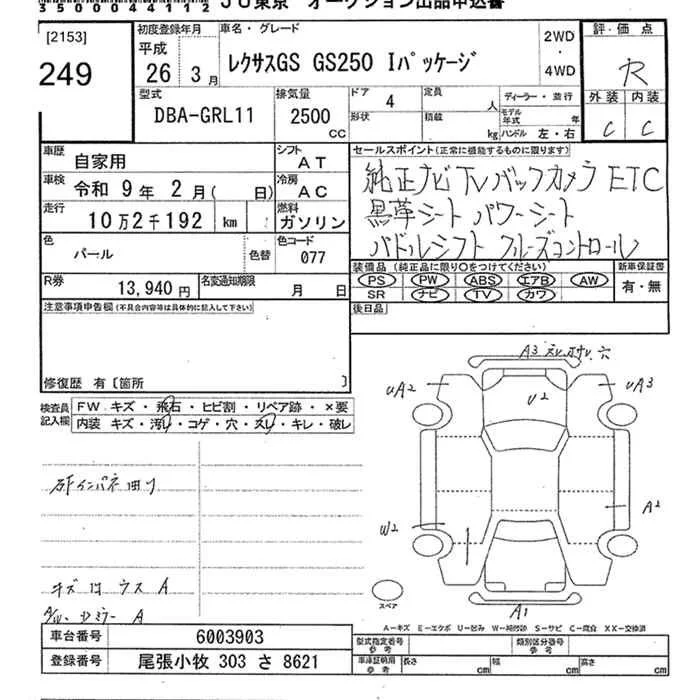 35000044112
JU東京 オークション出品申込書
[2153]
249
初度登録年月
平成
26 3月
車名・グレード
レクサスGS GS250 Iパッケージ
2WD
・
4WD
評価点
R
外装 内装
C C
型式
DBA-GRL11
排気量
2500
CC
ドア
4
定員
人
形状
積載
kg
ディーラー・並行
モデル年式
年
ハンドル 左・右
車歴
自家用
シフト
AT
車検
令和 9年 2月( 日)
冷房
AC
走行
10万2千192 km
燃料
ガソリン
色
パール
色替
色コード
077
R券
13,940円
名変通知期限
月 日
セールスポイント(正常に機能するものに限ります)
純正ナビ TV バックカメラ ETC
黒革シート パワーシート
パドルシフト クルーズコントロール
装備品 (純正品に限り○をつけてください)
PS PW ABS エアB AW
SR ナビ TV カワ
新車保証書
有・無
後日品
注意事項申告欄(不具合内容等は具体的に記入して下さい)
修復歴 有〔箇所 〕
検査員
記入欄
FW キズ・飛石・ヒビ割・リペア跡・×要
内装 キズ・汚れ・コゲ・穴・スレ・キレ・破レ
インパネ
キズ
ウス A
ミラー A
A3
UA2
U2
UA3
A2
W2
A1
スペア
A-キズ E-エクボ U-凹み W-補修跡 S-サビ C-腐食 XX-交換済
車台番号
6003903
登録番号
尾張小牧 303 さ 8621
型式指定番号
参考
類別区分番号
参考
車庫証明用
参考
長さ
cm
幅
cm
高さ
cm